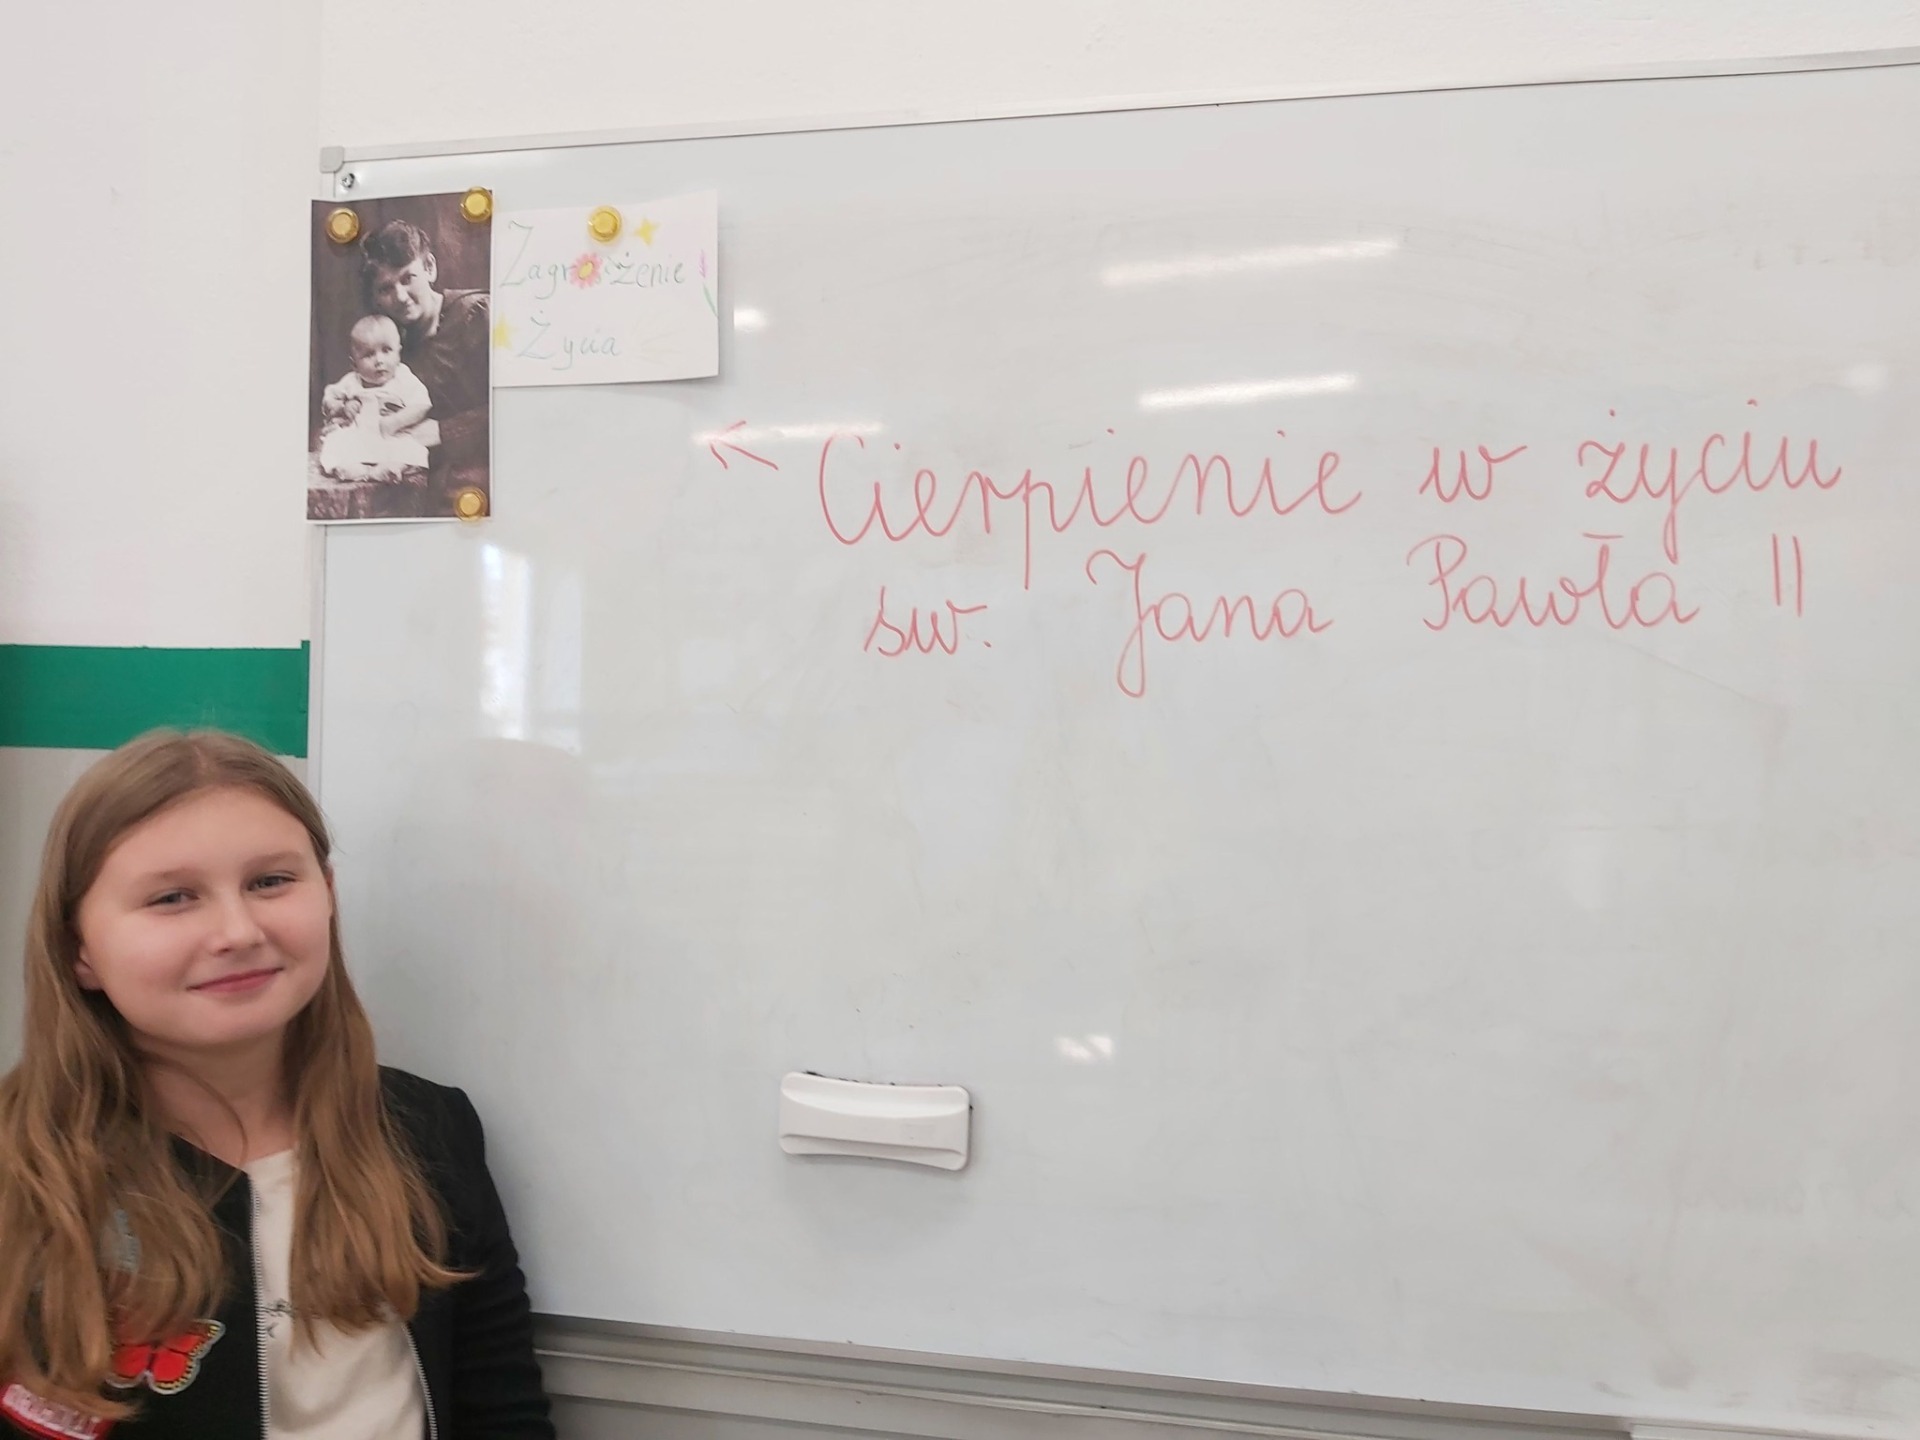 Zagrożenie
Życia
Cierpienie w życiu
św. Jana Pawła II